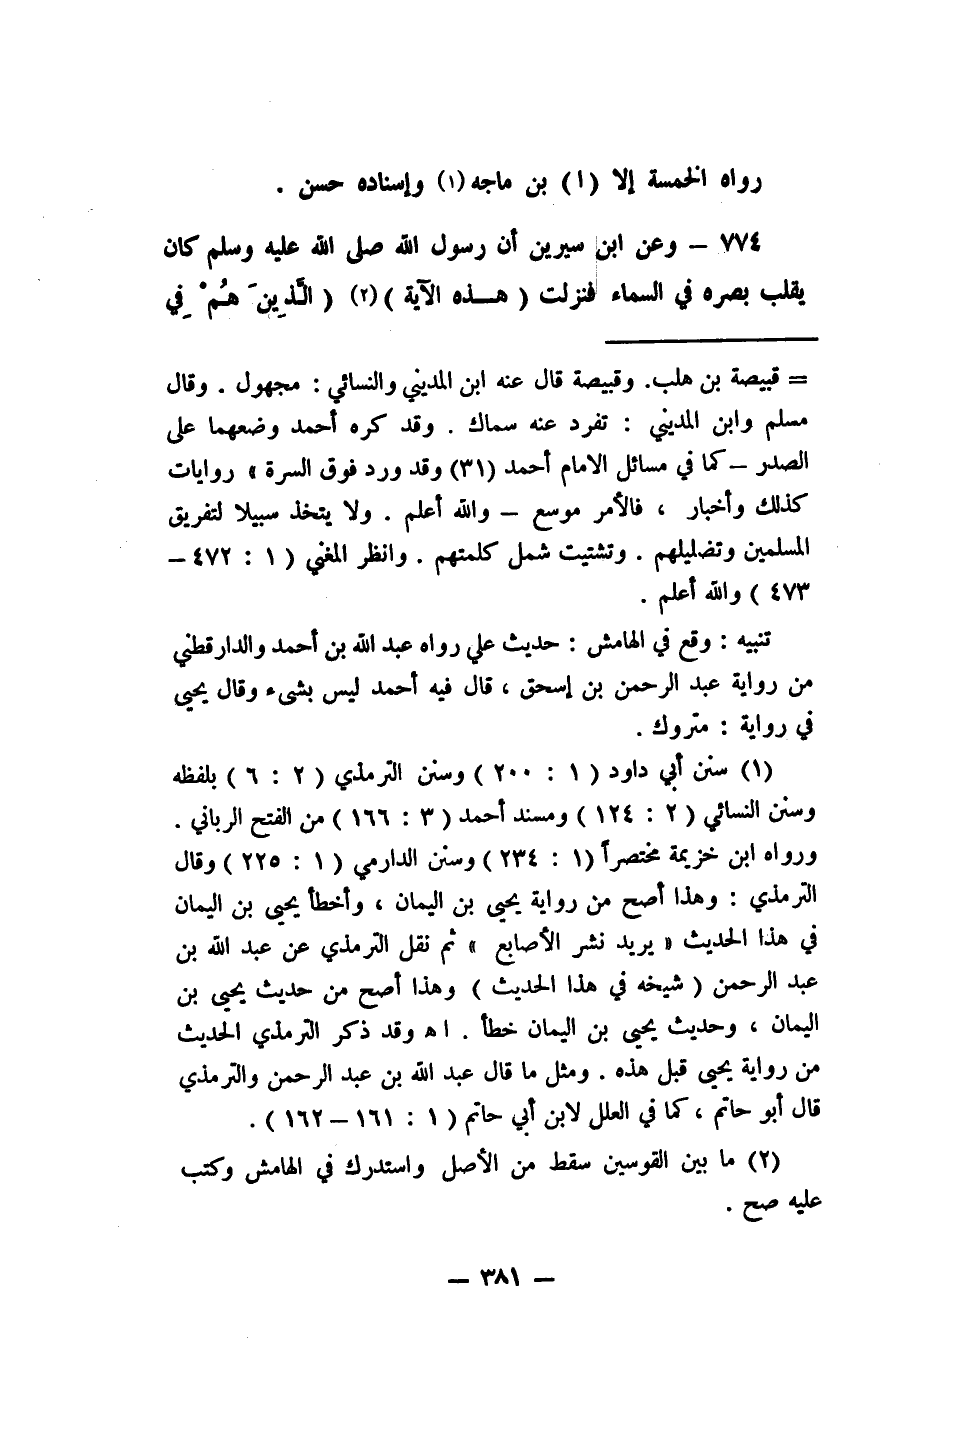 رواه الخمسة إلا (ا) بن ماجه (١) وإسناده حسن .
٧٧٤ – وعن ابن سيرين أن رسول الله صلى الله عليه وسلم كان
يقلب بصره في السماء فنزلت ( هـذه الآية ) (٢) ( الَّذِينَ هُمْ فِي
= قبيصة بن هلب. وقبيصة قال عنه ابن المديني والنسائي : مجهول . وقال
مسلم وابن المديني : تفرد عنه سماك . وقد كره أحمد وضعهما على
الصدر – كما في مسائل الامام أحمد (٣١) وقد ورد فوق السرة » روايات
كذلك وأخبار ، فالأمر موسع – والله أعلم . ولا يتخذ سبيلا لتفريق
المسلمين وتضليلهم . وتشتيت شمل كلمتهم . وانظر المغني ( ١ : ٤٧٢ –
٤٧٣ ) والله أعلم .
تنبيه : وقع في الهامش : حديث علي رواه عبد الله بن أحمد والدارقطني
من رواية عبد الرحمن بن إسحق ، قال فيه أحمد ليس بشيء وقال يحيى
في رواية : متروك .
(١) سنن أبي داود ( ١ : ٢٠٠ ) وسنن الترمذي ( ٢ : ٦ ) بلفظه
وسنن النسائي ( ٢ : ١٢٤ ) ومسند أحمد ( ٣ : ١٦٦ ) من الفتح الرباني .
ورواه ابن خزيمة مختصراً (١ : ٢٣٤ ) وسنن الدارمي ( ١ : ٢٢٥ ) وقال
الترمذي : وهذا أصح من رواية يحيى بن اليمان ، وأخطأ يحيى بن اليمان
في هذا الحديث « يريد نشر الأصابع » ثم نقل الترمذي عن عبد الله بن
عبد الرحمن ( شيخه في هذا الحديث ) وهذا أصح من حديث يحيى بن
اليمان ، وحديث يحيى بن اليمان خطأ . اه وقد ذكر الترمذي الحديث
من رواية يحيى قبل هذه . ومثل ما قال عبد الله بن عبد الرحمن والترمذي
قال أبو حاتم ، كما في العلل لابن أبي حاتم ( ١ : ١٦١ – ١٦٢ ) .
(٢) ما بين القوسين سقط من الأصل واستدرك في الهامش وكتب
عليه صح .
– ٣٨١ –